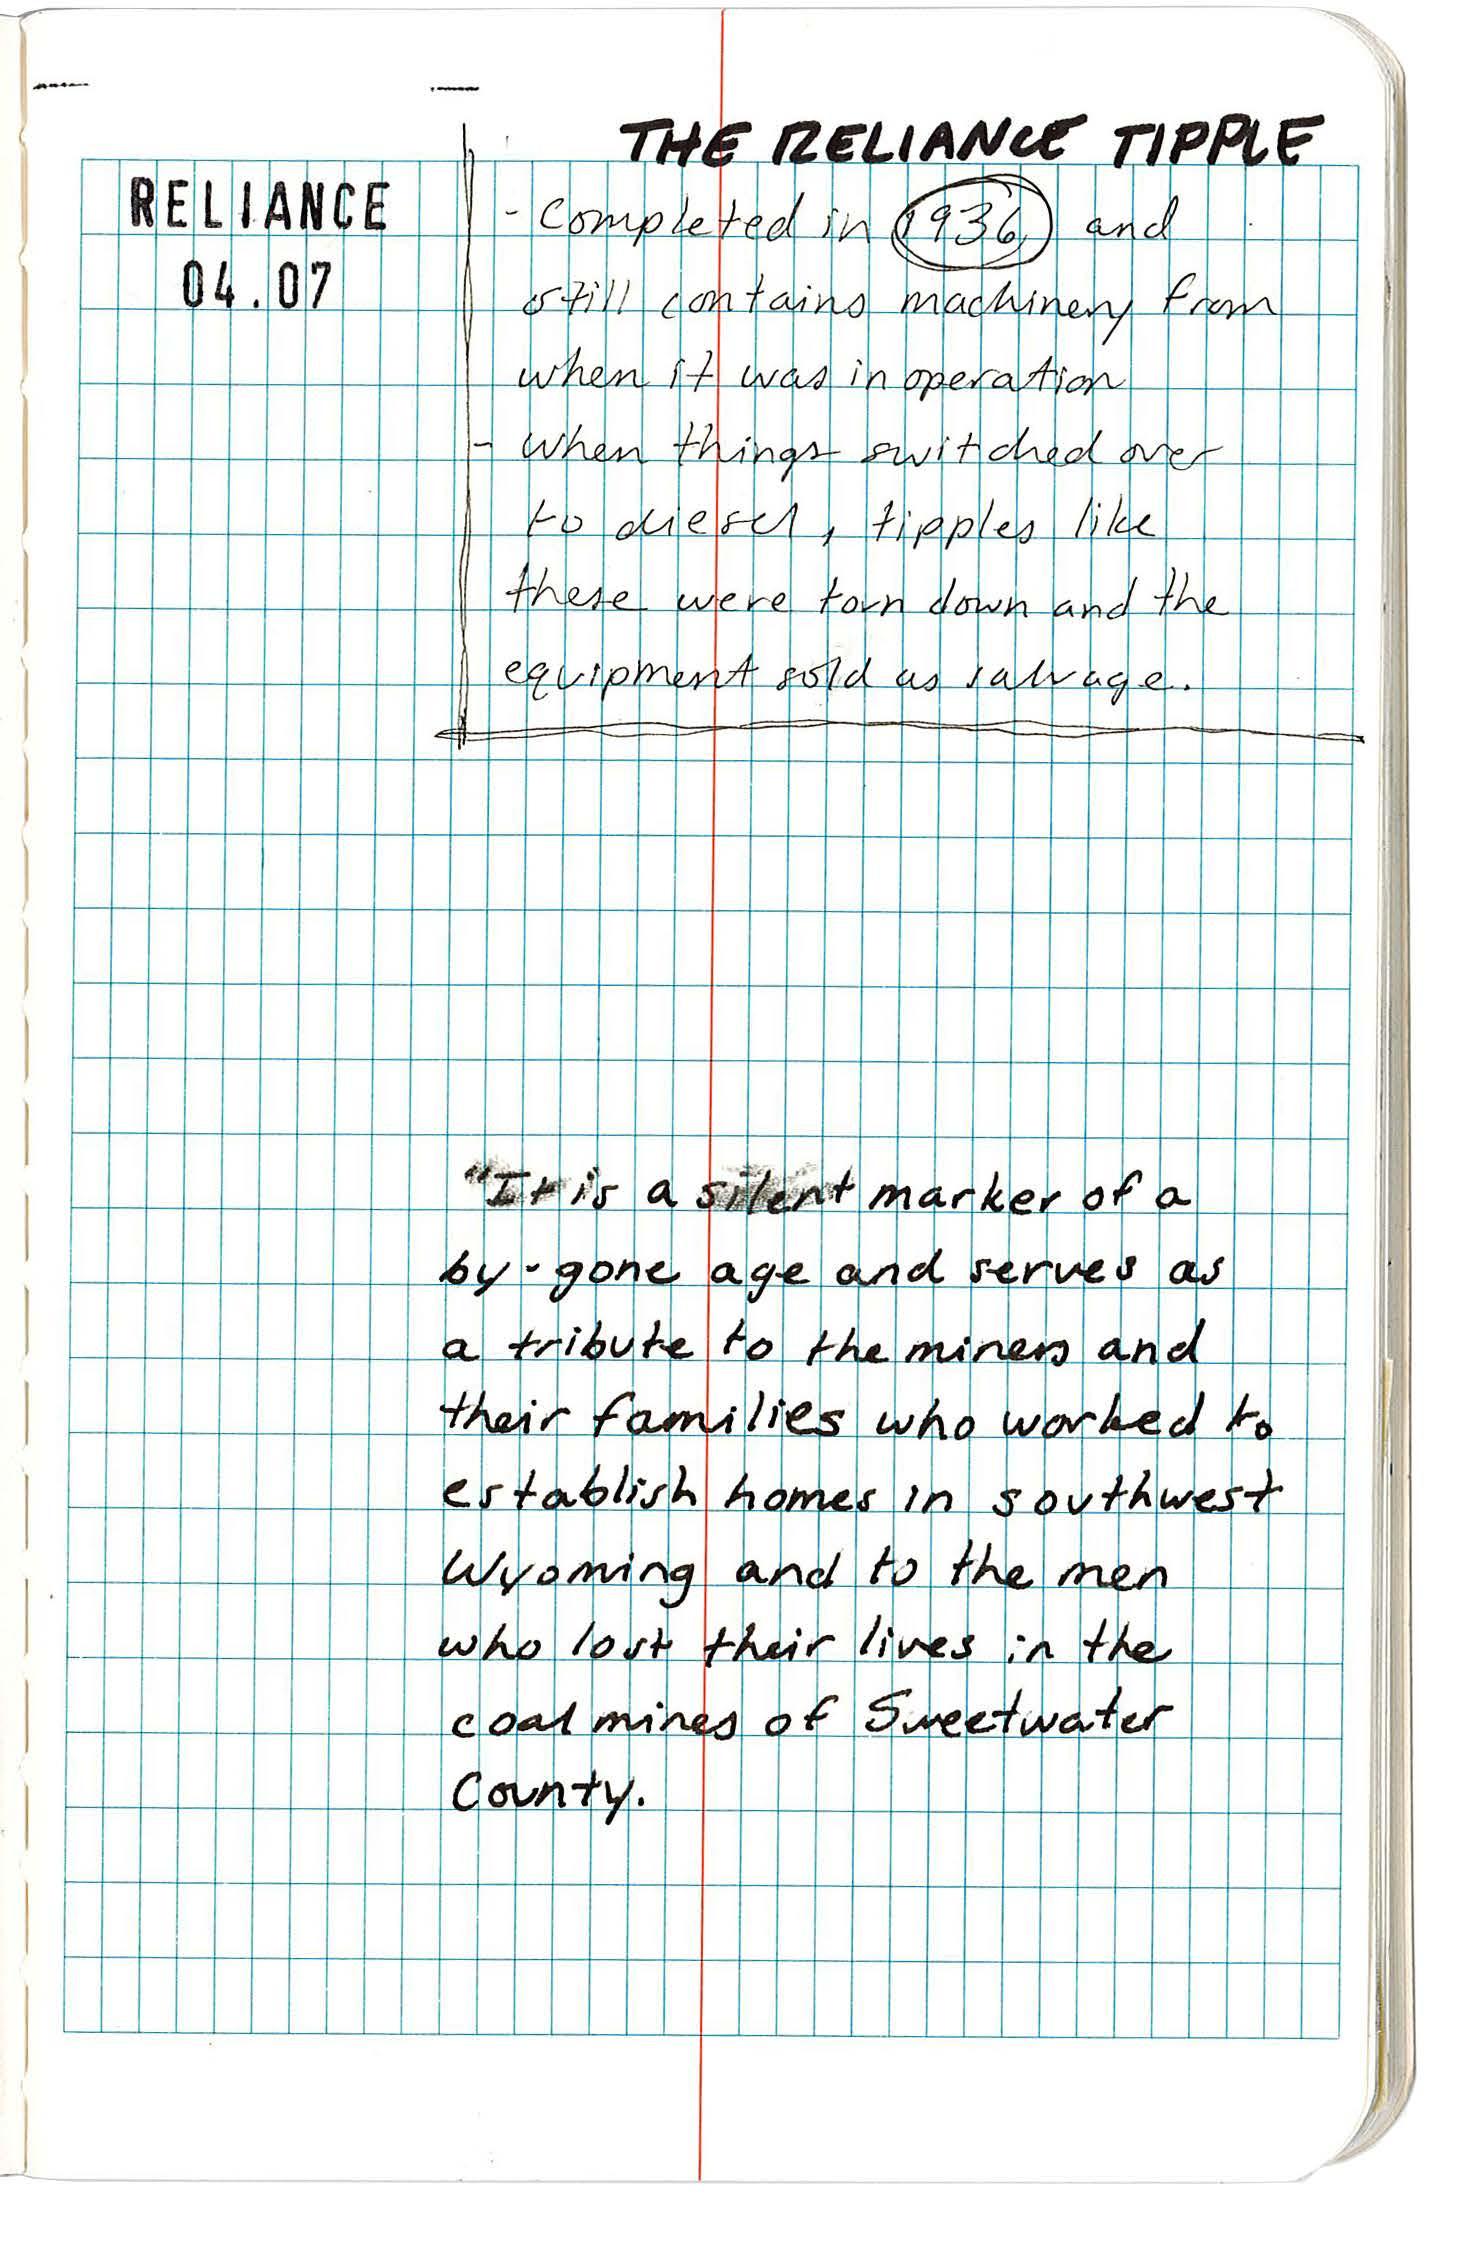 THE RELIANCE TIPPLE
RELIANCE
04.07
- completed in 1936 and
still contains machinery from
when it was in operation
- when things switched over
to diesel, tipples like
these were torn down and the
equipment sold as salvage.
"It is a silent marker of a
by-gone age and serves as
a tribute to the miners and
their families who worked to
establish homes in southwest
Wyoming and to the men
who lost their lives in the
coal mines of Sweetwater
County.